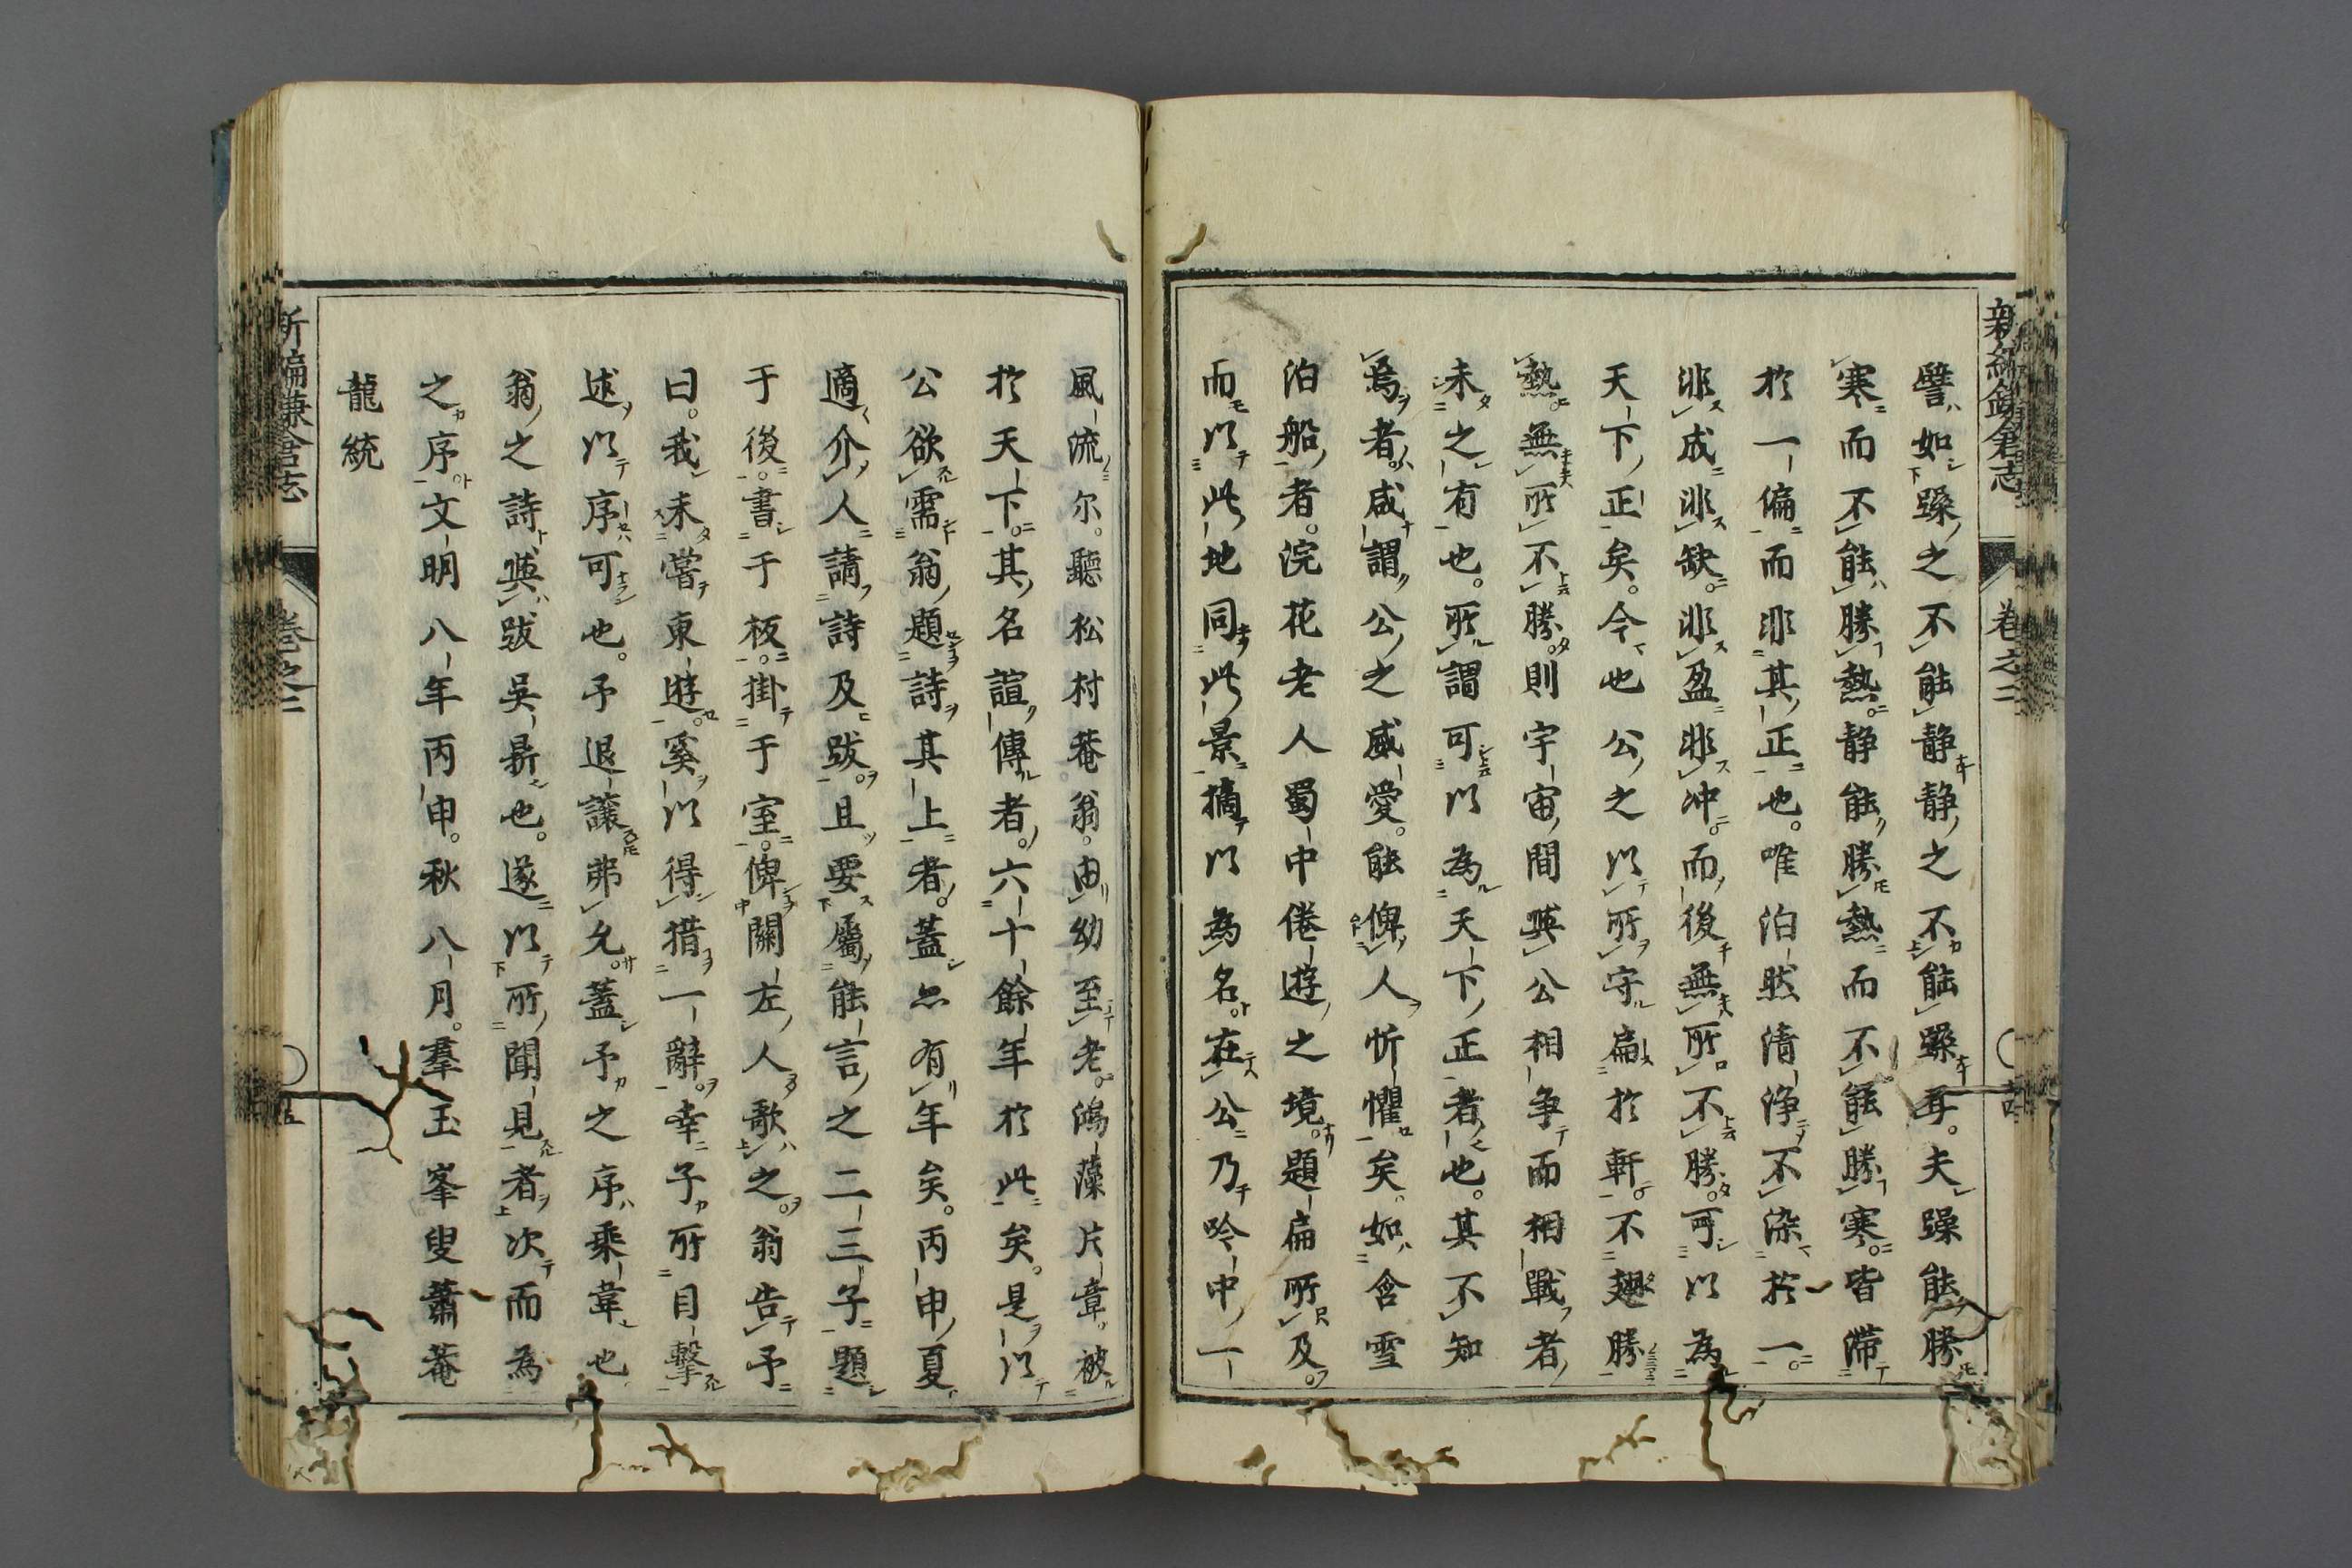 新編鎌倉志 卷之二
譬如躁之不能静静之不能躁耳。夫躁能勝
寒而不能勝熱。静能勝熱而不能勝寒。皆滞
於一偏而非其正也。唯泊然清浄不染於一。
非成非缺。非盈非冲。而後無所不勝。可以為
天下正矣。今也公之以所守扁於軒。不翅勝
熱。無所不勝。則宇宙間與公相争而相戰者
未之有也。所謂可以為天下正者也。其不知
焉者。咸謂公之威愛。能俾人忻懼矣。如含雪
泊船者。浣花老人蜀中倦遊之境。題扁所及。
而以此地同此景摘以為名。在公乃吟中一
風流尓。聽松村菴翁。由幼至老。鴻藻片章。被
於天下。其名諠傳者。六十餘年於此矣。是以
公欲需翁題詩其上者。蓋亦有年矣。丙申夏
適介人請詩及跋。且要屬能言之二三子題
于後。書于板。掛于室。俾關左人歌之。翁告予
曰。我未嘗東遊。奚以得措一辭。幸子所目擊
述以序可也。予退讓弗允。蓋予之序乘韋也
翁之詩與跋吳昪也。遂以所聞見者次而為
之序。文明八年丙申。秋八月。羣玉峯叟蕭菴
龍統
新編鎌倉志 卷之二